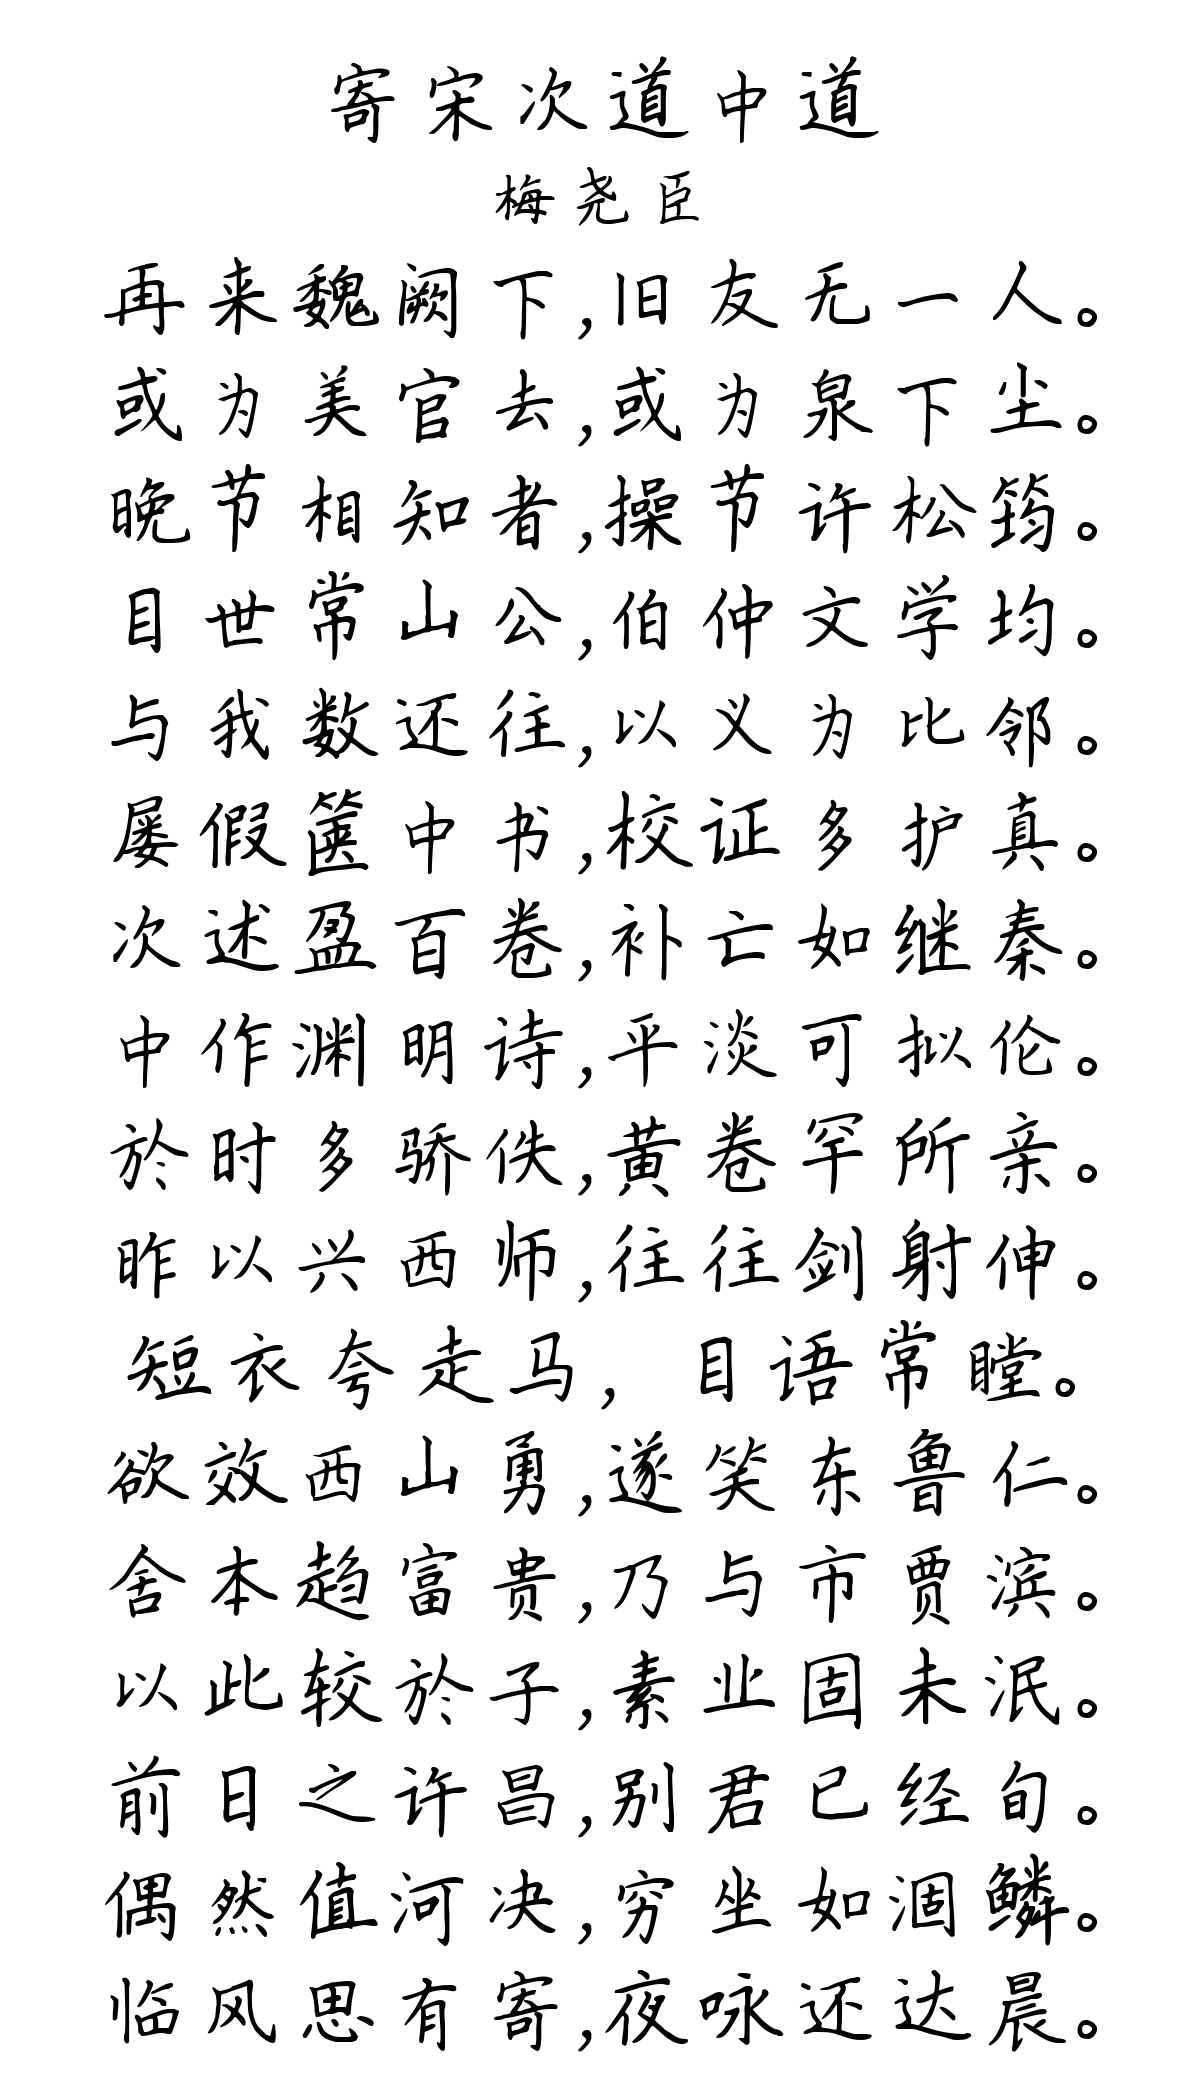 寄宋次道中道
梅尧臣
再来魏阙下,旧友无一人。
或为美官去,或为泉下尘。
晚节相知者,操节许松筠。
目世常山公,伯仲文学均。
与我数还往,以义为比邻。
屡假箧中书,校证多护真。
次述盈百卷,补亡如继秦。
中作渊明诗,平淡可拟伦。
於时多骄佚,黄卷罕所亲。
昨以兴西师,往往剑射伸。
短衣夸走马, 目语常瞠。
欲效西山勇,遂笑东鲁仁。
舍本趋富贵,乃与市贾滨。
以此较於子,素业固未泯。
前日之许昌,别君已经旬。
偶然值河决,穷坐如涸鳞。
临风思有寄,夜咏还达晨。